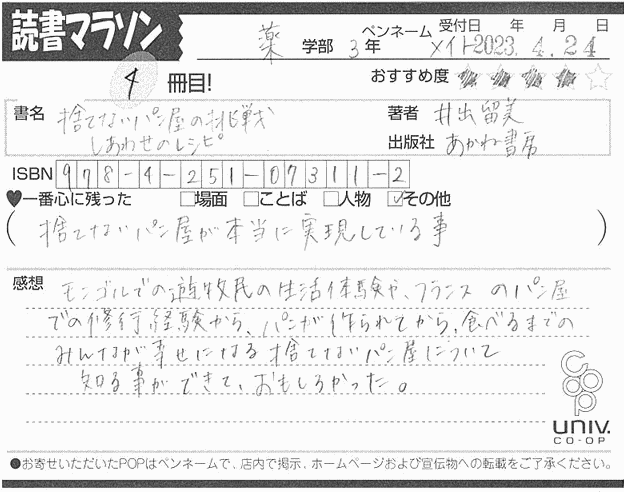 読書マラソン
薬 学部 3年 ペンネーム メイト 受付日 2023年 4月 24日
4 冊目! おすすめ度 ★★★★☆
書名 捨てないパン屋の挑戦 著者 井出留美
しあわせのレシピ 出版社 あかね書房
ISBN 978-4-251-07311-2
♥一番心に残った □場面 □ことば □人物 ☑その他
(捨てないパン屋が本当に実現している事)
感想 モンゴルでの遊牧民の生活体験や、フランスのパン屋
での修行経験から、パンが作られてから、食べるまでの
みんなが幸せになる捨てないパン屋について
知る事ができて、おもしろかった。
coop
UNIV.
CO-OP
●お寄せいただいたPOPはペンネームで、店内で掲示、ホームページおよび宣伝物への転載をご了承ください。